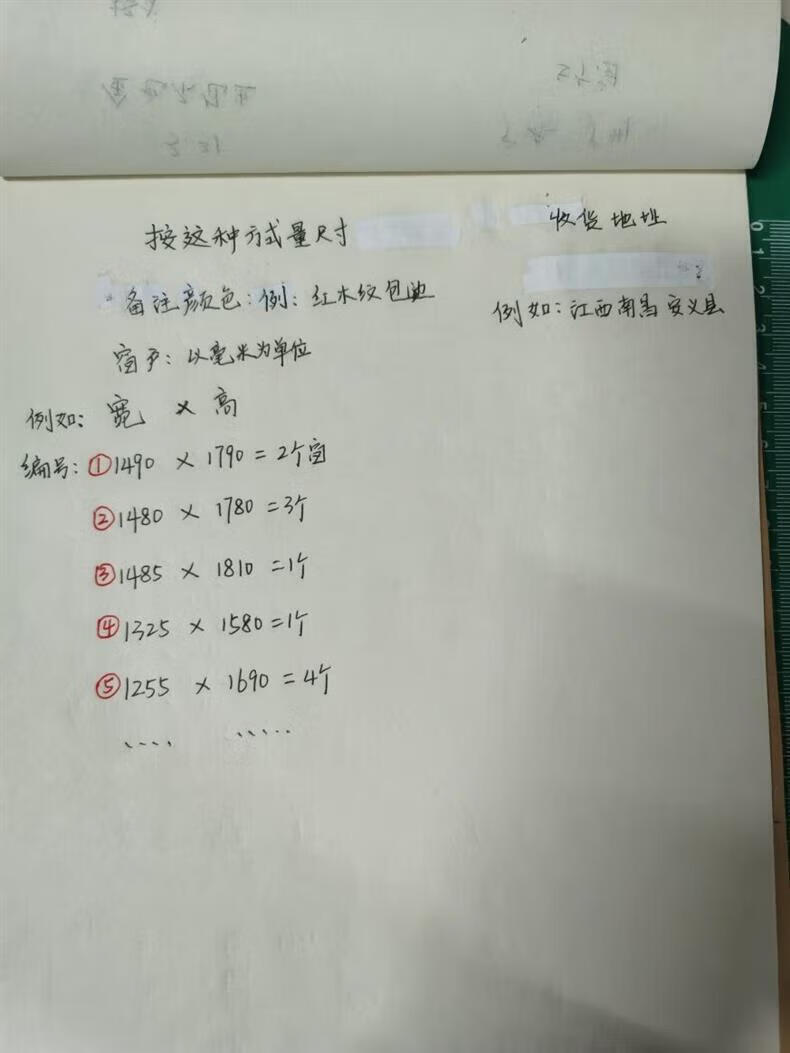 按这种方式量尺寸
收货地址
备注颜色:例:红木纹包边
例如:江西南昌安义县
窗户:以毫米为单位
例如: 宽 × 高
编号:①1490 × 1790=2个窗
②1480 × 1780=3个
③1485 × 1810=1个
④1325 × 1580=1个
⑤1255 × 1690=4个
..... .....
0
1
2
3
4
5
6
7
8